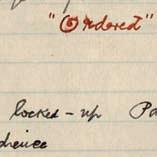 "Ordered"
locked - up Pa
dience